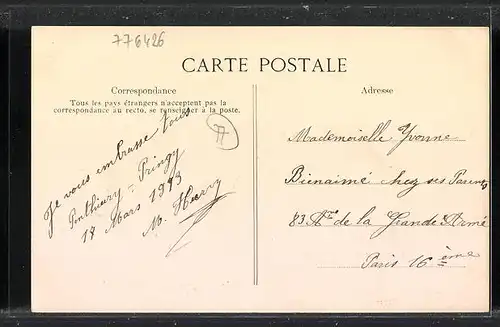 776426
CARTE POSTALE
Correspondance
Tous les pays étrangers n'acceptent pas la
correspondance au recto, se renseigner à la poste.
Je vous embrasse tous
Ponthierry - Pringy
17 Mars 1913
M. Huvey
77
Adresse
Mademoiselle Yvonne
Bienaimé chez ses Parents
83 Aue de la Grande Armé
Paris 16ème